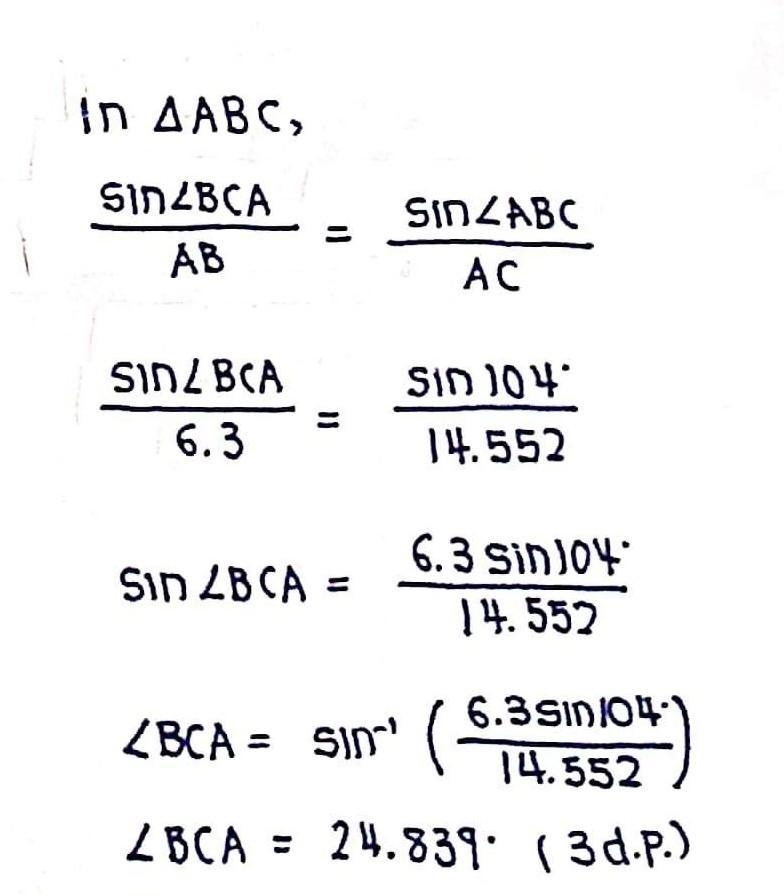 In ΔABC,
sin∠BCA / AB = sin∠ABC / AC
sin∠BCA / 6.3 = sin 104° / 14.552
sin∠BCA = 6.3 sin104° / 14.552
∠BCA = sin⁻¹ (6.3 sin104° / 14.552)
∠BCA = 24.839° (3 d.p.)